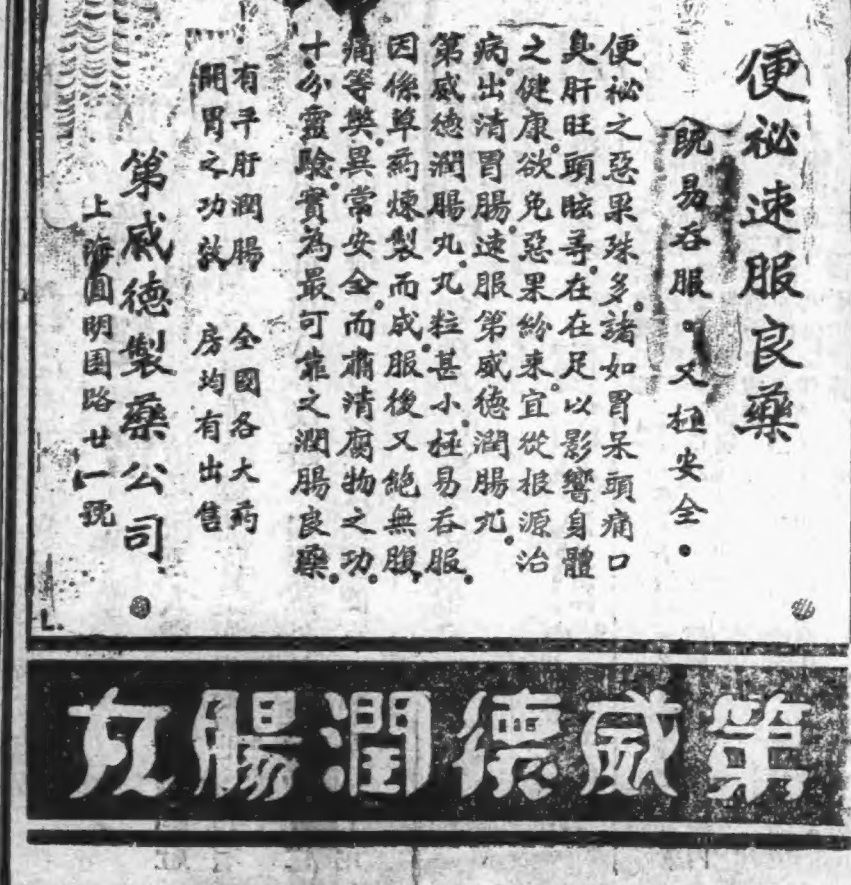 便祕速服良藥
既易吞服。又極安全。
便祕之惡果殊多。諸如胃呆頭痛口
臭肝旺頭眩等。在在足以影響身體
之健康。欲免惡果紛來。宜從根源治
病。出清胃腸。速服第威德潤腸丸。
第威德潤腸丸。丸粒甚小。極易吞服。
因係草葯煉製而成。服後又絕無腹
痛等獘。異常安全。而肅清腐物之功。
十分靈驗。實為最可靠之潤腸良藥。
有平肝潤腸
開胃之功效
全國各大葯
房均有出售
第威德製藥公司
上海圓明園路廿一號
L.
第威德潤腸丸